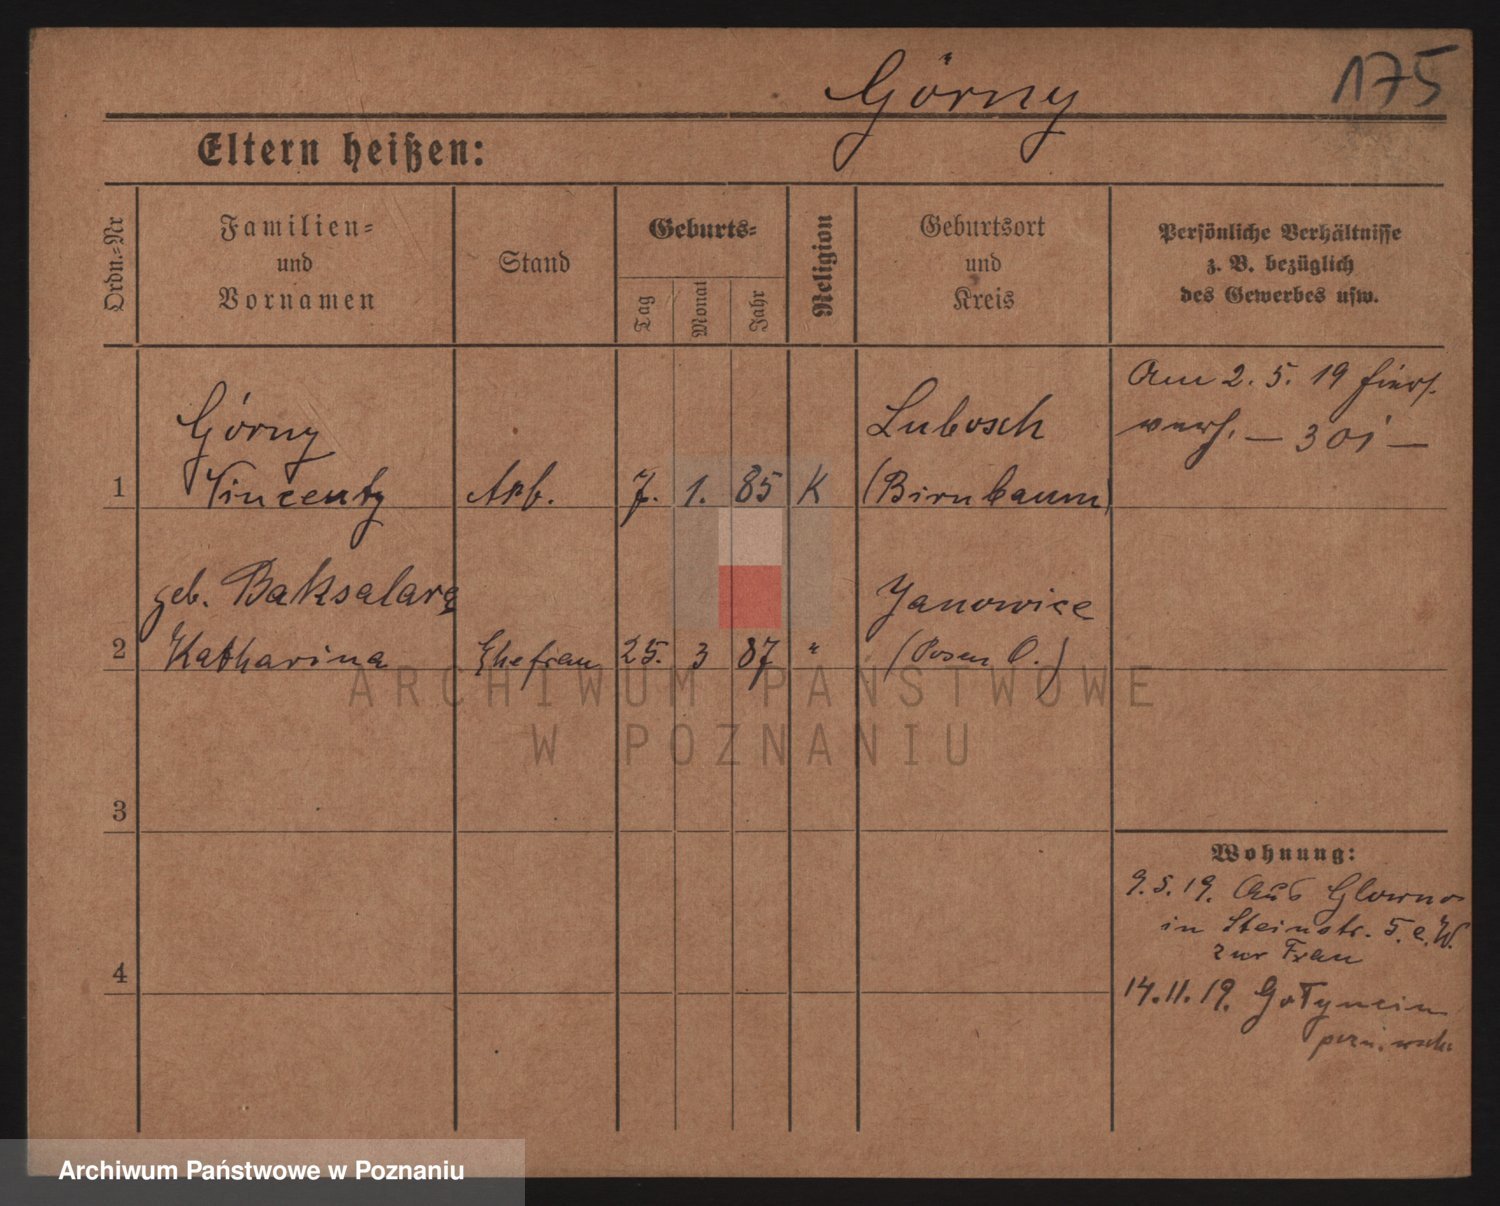 Górny 175
Eltern heißen:
Ordn.-Nr
Familien-
und
Vornamen
Stand
Geburts-
Tag
Monat
Jahr
Religion
Geburtsort
und
Kreis
Persönliche Verhältnisse
z. B. bezüglich
des Gewerbes usw.
Am 2. 5. 19
— 301 —
Górny
Lubosch
1 Vincenty Arb. 7. 1. 85 K (Birnbaum)
geb. Baksalarą
Janowice
2 Katharina Ehefrau 25. 3 87 " (Posen O.)
3
4
Wohnung:
9.5.19. Aus Glowno
in Steinstr. 5. e.W.
zur Frau
14.11.19.
ARCHIWUM PAŃSTWOWE
W POZNANIU
Archiwum Państwowe w Poznaniu